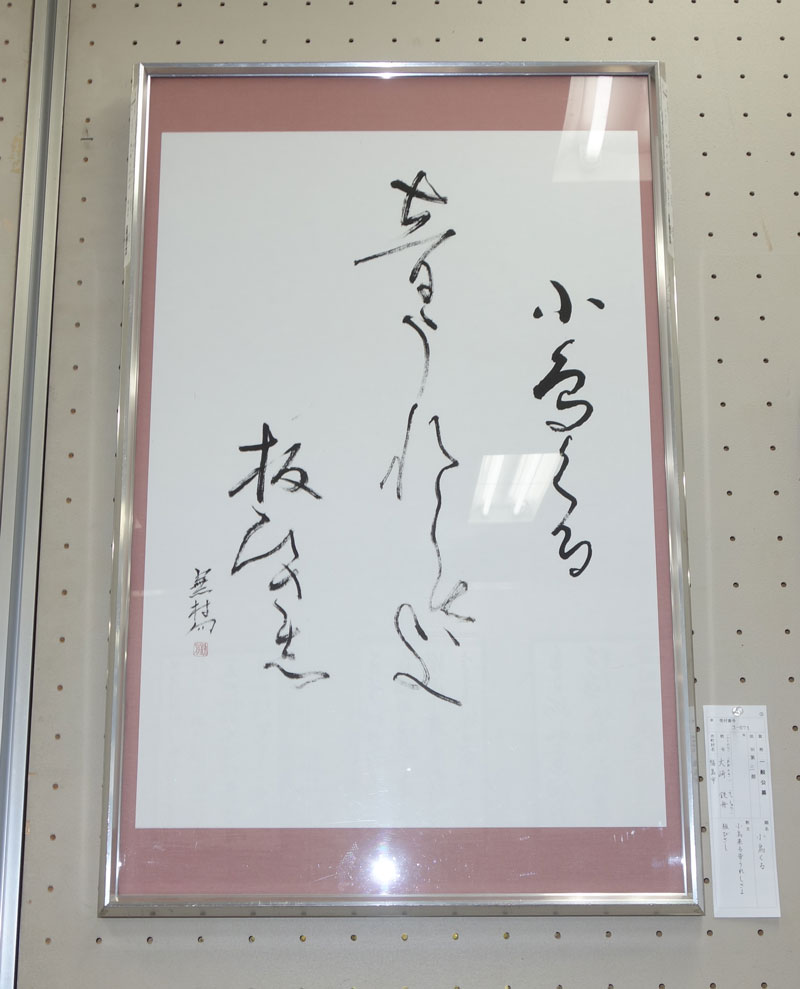 小鳥くる
音うれしさよ
板ひさし
蕪村
一般公募
小鳥くる
小鳥来る音うれしさよ
板びさし